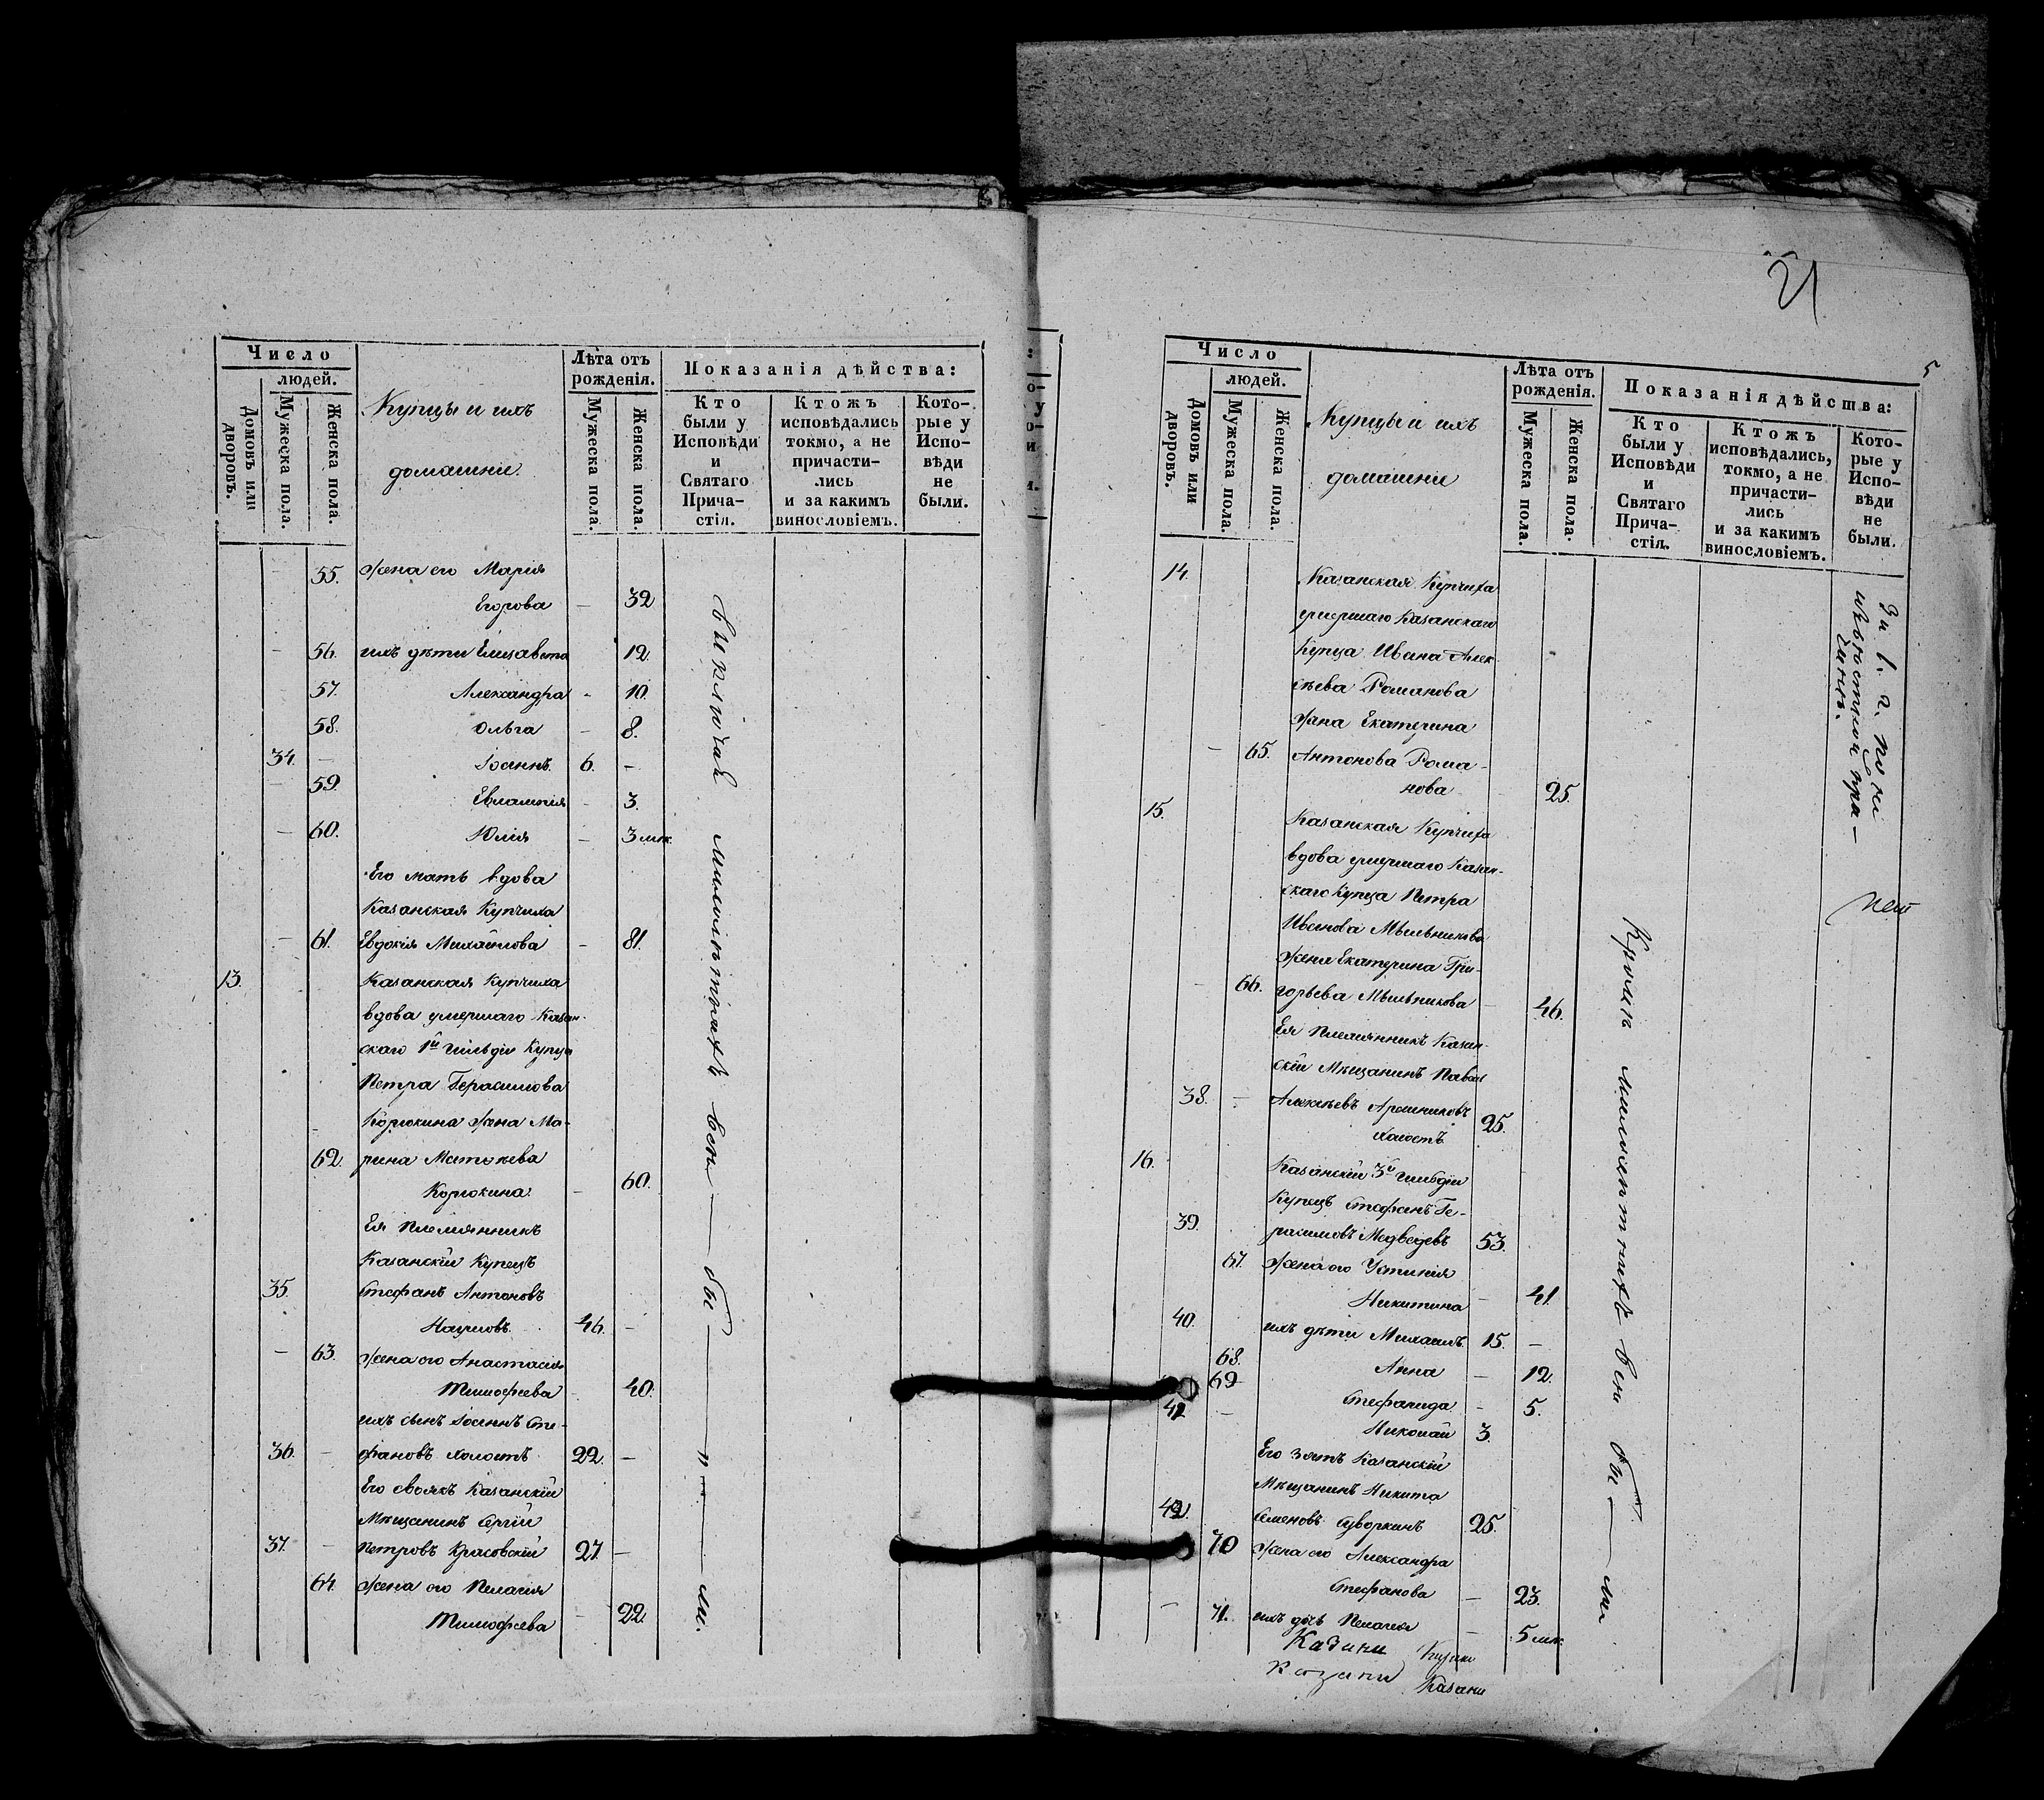 Число
людей.
Домовъ или дворовъ.
Мужеска пола.
Женска пола.
Купцы и ихъ
домашніе.
Лѣта отъ
рожденія.
Мужеска пола.
Женска пола.
Показанія дѣйства:
Кто
были у
Исповѣди
и
Святаго
Прича-
стія.
Ктожъ
исповѣдались
токмо, а не
причасти-
лись
и за какимъ
винословіемъ.
Кото-
рые у
Испо-
вѣди
не
были.
55. жена его Марія
Егорова - 32
- 56. ихъ дѣти Елисавета 12.
57. Александра - 10.
58. Ольга - 8.
34. - Іоаннъ. 6. -
- 59. Евлампія - 3.
- 60. Юлія - 3 мѣс.
Его мать вдова
Казанская Купчиха
- 61. Евдокія Михайлова - 81.
13. Казанская Купчиха
вдова умершаго Казан-
скаго 1й гильдіи Купца
Петра Герасимова
Корюкина жена Ма-
62. рина Матвѣева
Корюкина. - 60.
Ея Племянникъ
Казанскій Купецъ
35. Стефанъ Антоновъ
Наумовъ. 46. -
- 63. жена его Анастасія
Тимофѣева - 40.
ихъ сынъ Іоаннъ Сте-
36. - фановъ холостъ 22. -
Его своякъ Казанскій
Мѣщанинъ Сергій
37. - Петровъ Красовскій 27. -
64. жена его Пелагія
Тимофѣева - 22.
всѣ
бы
ли.
21
5
Число
людей.
Домовъ или дворовъ.
Мужеска пола.
Женска пола.
Купцы и ихъ
домашніе
Лѣта отъ
рожденія.
Мужеска пола.
Женска пола.
Показанія дѣйства:
Кто
были у
Исповѣди
и
Святаго
Прича-
стія.
Ктожъ
исповѣдались,
токмо, а не
причасти-
лись
и за какимъ
винословіемъ.
Кото-
рые у
Испо-
вѣди
не
были.
14. Казанская Купчиха
умершаго Казанскаго
Купца Ивана Алек-
сѣева Романова
жена Екатерина
- 65. Антонова Рома-
нова 25.
15. Казанская Купчиха
вдова умершаго Казан-
скаго Купца Петра
Иванова Мѣльникова
жена Екатерина Гри-
- 66. горьева Мѣльникова - 46.
Ея Племянникъ Казан-
скій Мѣщанинъ Павелъ
38. - Алексѣевъ
холостъ. 25.
16. Казанскій 3й гильдіи
Купецъ Стефанъ Ге-
39. расимовъ Медведевъ 53.
67. жена его Устинія
Никитина - 41.
40. ихъ дѣти Михаилъ. 15. -
68. Анна - 12.
69 Стефанида - 5.
41 - Николай 3.
Его зять Казанскій
Мѣщанинъ Никита
42. Семеновъ Суворкинъ 25.
70 жена его Александра
Стефанова - 23.
- 71. ихъ дочь Пелагея - 5 мѣс.
Казани
Казани
Казани
Кромѣ
всѣ
бы
ли